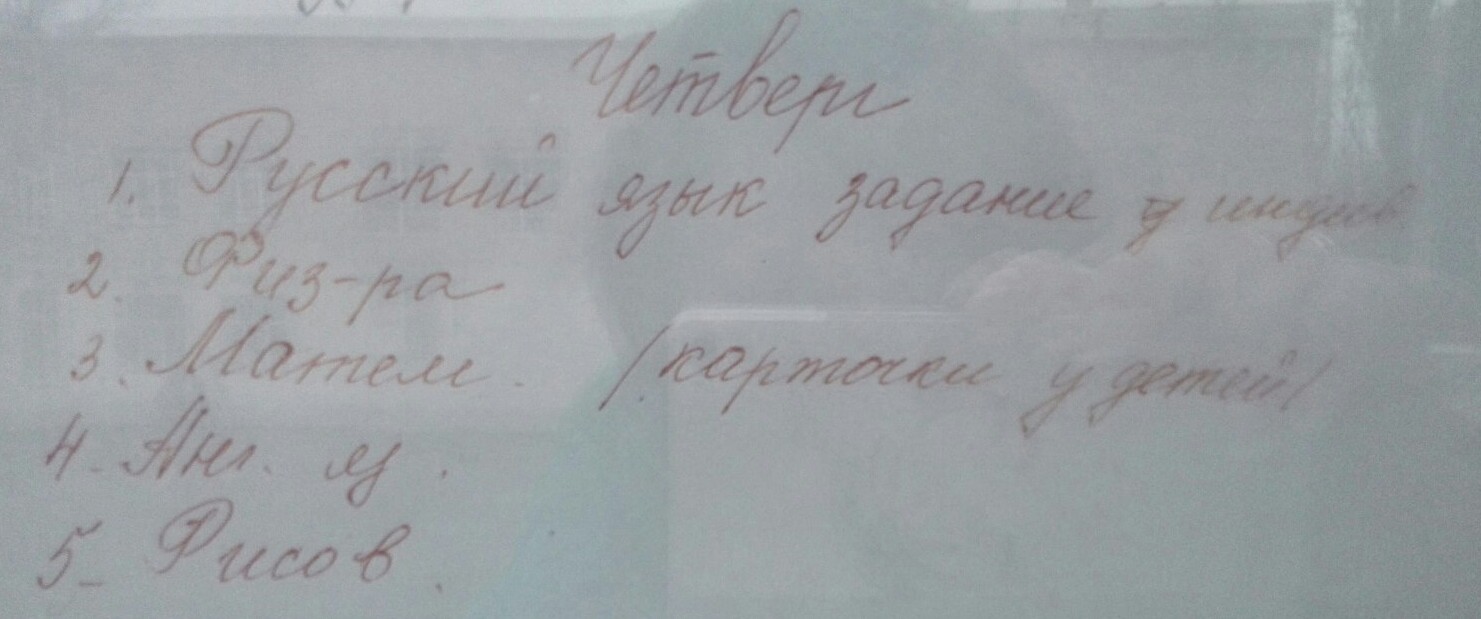 Четверг
1. Русский язык задание индив
2. Физ-ра
3. Матем. /карточки у детей/
4. Анг. яз.
5 Рисов.